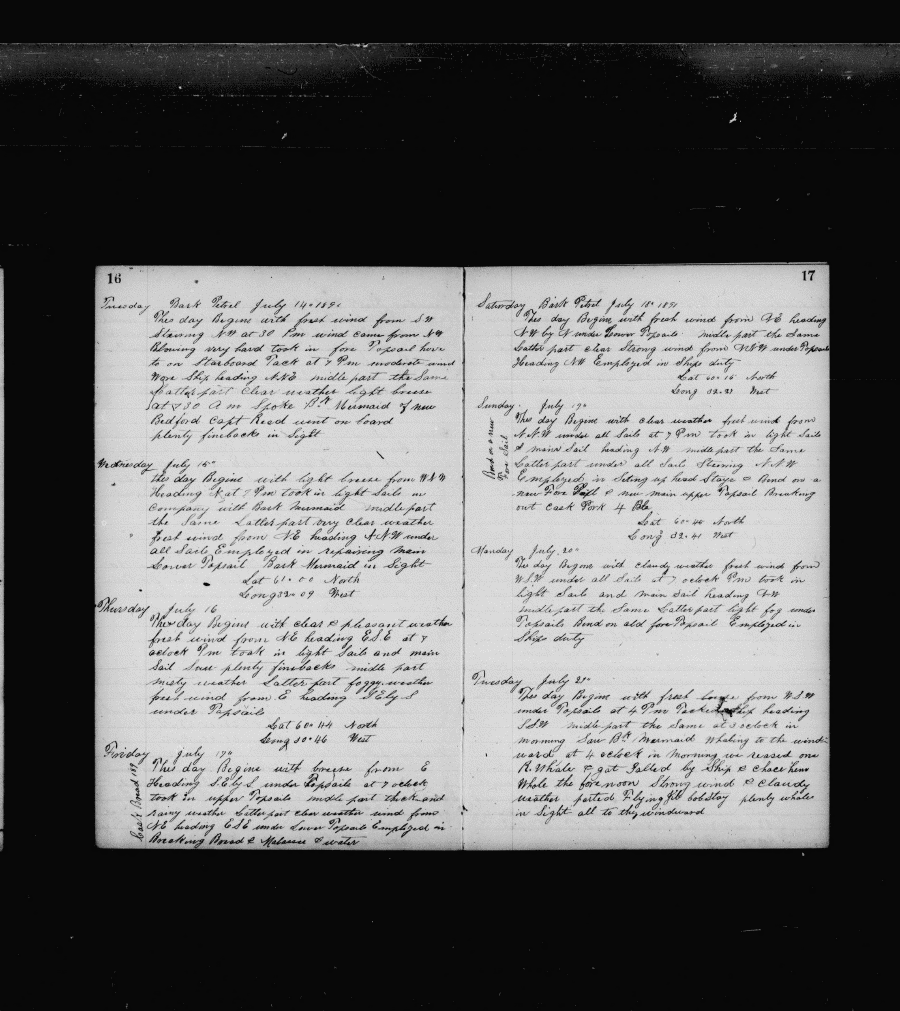 16
Tuesday Bark Petrel July 14" 1891
This day Begins with fresh wind from SW
Stearing NW at 30 Pm wind came from NW
Blowing very hard took in fore Topsail hove
to on Starboard Tack at 7 Pm moderate wind
Wore Ship heading NNE midle part the Same
Latter part Clear weather light breese
at 730 A m Spoke Bk Mermaid of New
Bedford Capt Reed went on board
plenty finebacks in Sight
Wednesday July 15"
this day Begins with light breese from WNW
Heading N at 7 Pm took in light Sails in
Company with Bark Mermaid midle part
the Same Latter part very Clear weather
fresh wind from NE heading NNW under
all Sails Employed in repairing main
Lower Topsail Bark Mermaid in Sight
Lat 61" 00 North
Long 32" 09 West
Thursday July 16
This day Begins with clear & pleasant weather
fresh wind from NE heading ESE at 7
oclock Pm took in light Sails and main
Sail Saw plenty finebacks midle part
misty weather Latter part foggy weather
fresh wind from E heading NEly S
under Topsails
Lat 60" 44 North
Long 30" 46 West
Friday July 17"
Cask Bread 189
This day Begins with breese from E
Heading SEly S under Topsails at 7 oclock
took in upper Topsails midle part thick and
rainy weather Latter part clear weather wind from
NE heading ESE under Lower Topsails Employed in
Breaking Bread & Malasses & water
17
Saturday Bark Petrel July 18" 1891
This day Begins with fresh wind from NE heading
NW by N under Lower Topsails midle part the Same
Latter part clear Strong wind from NNW under Topsails
Heading NW Employed in Ships duty
Lat 60" 15 North
Long 32" 31 West
Sunday July 19"
Bend on a new
Fore Sail
This day Begins with clear weather fresh wind from
NNW under all Sails at 7 Pm took in light Sails
& main Sail heading NW midle part the Same
Latter part under all Sails Stearing NNW
Employed in Seting up head Stays & Bend on a
new Fore Sail & new main upper Topsail Breaking
out Cask Pork 4 Bls
Lat 60" 40 North
Long 32" 41 West
Monday July 20"
This day Begins with Claudy weather fresh wind from
WSW under all Sails at 7 oclock Pm took in
light Sails and main Sail heading NW
midle part the Same Latter part light fog under
Topsails Bend on old fore Topsail Employed in
Ships duty
Tuesday July 21"
This day Begins with fresh breese from WSW
under Topsails at 4 Pm Tacked Ship heading
SSW midle part the Same at 3 oclock in
morning Saw Bk Mermaid Whaling to the wind-
ward at 4 oclock in Morning we reased one
R. Whale & got Galled by Ship & Chace him
Whole the fore noon Strong wind & Claudy
weather parted Flying Jib bobstay plenty whales
in Sight all to the windward